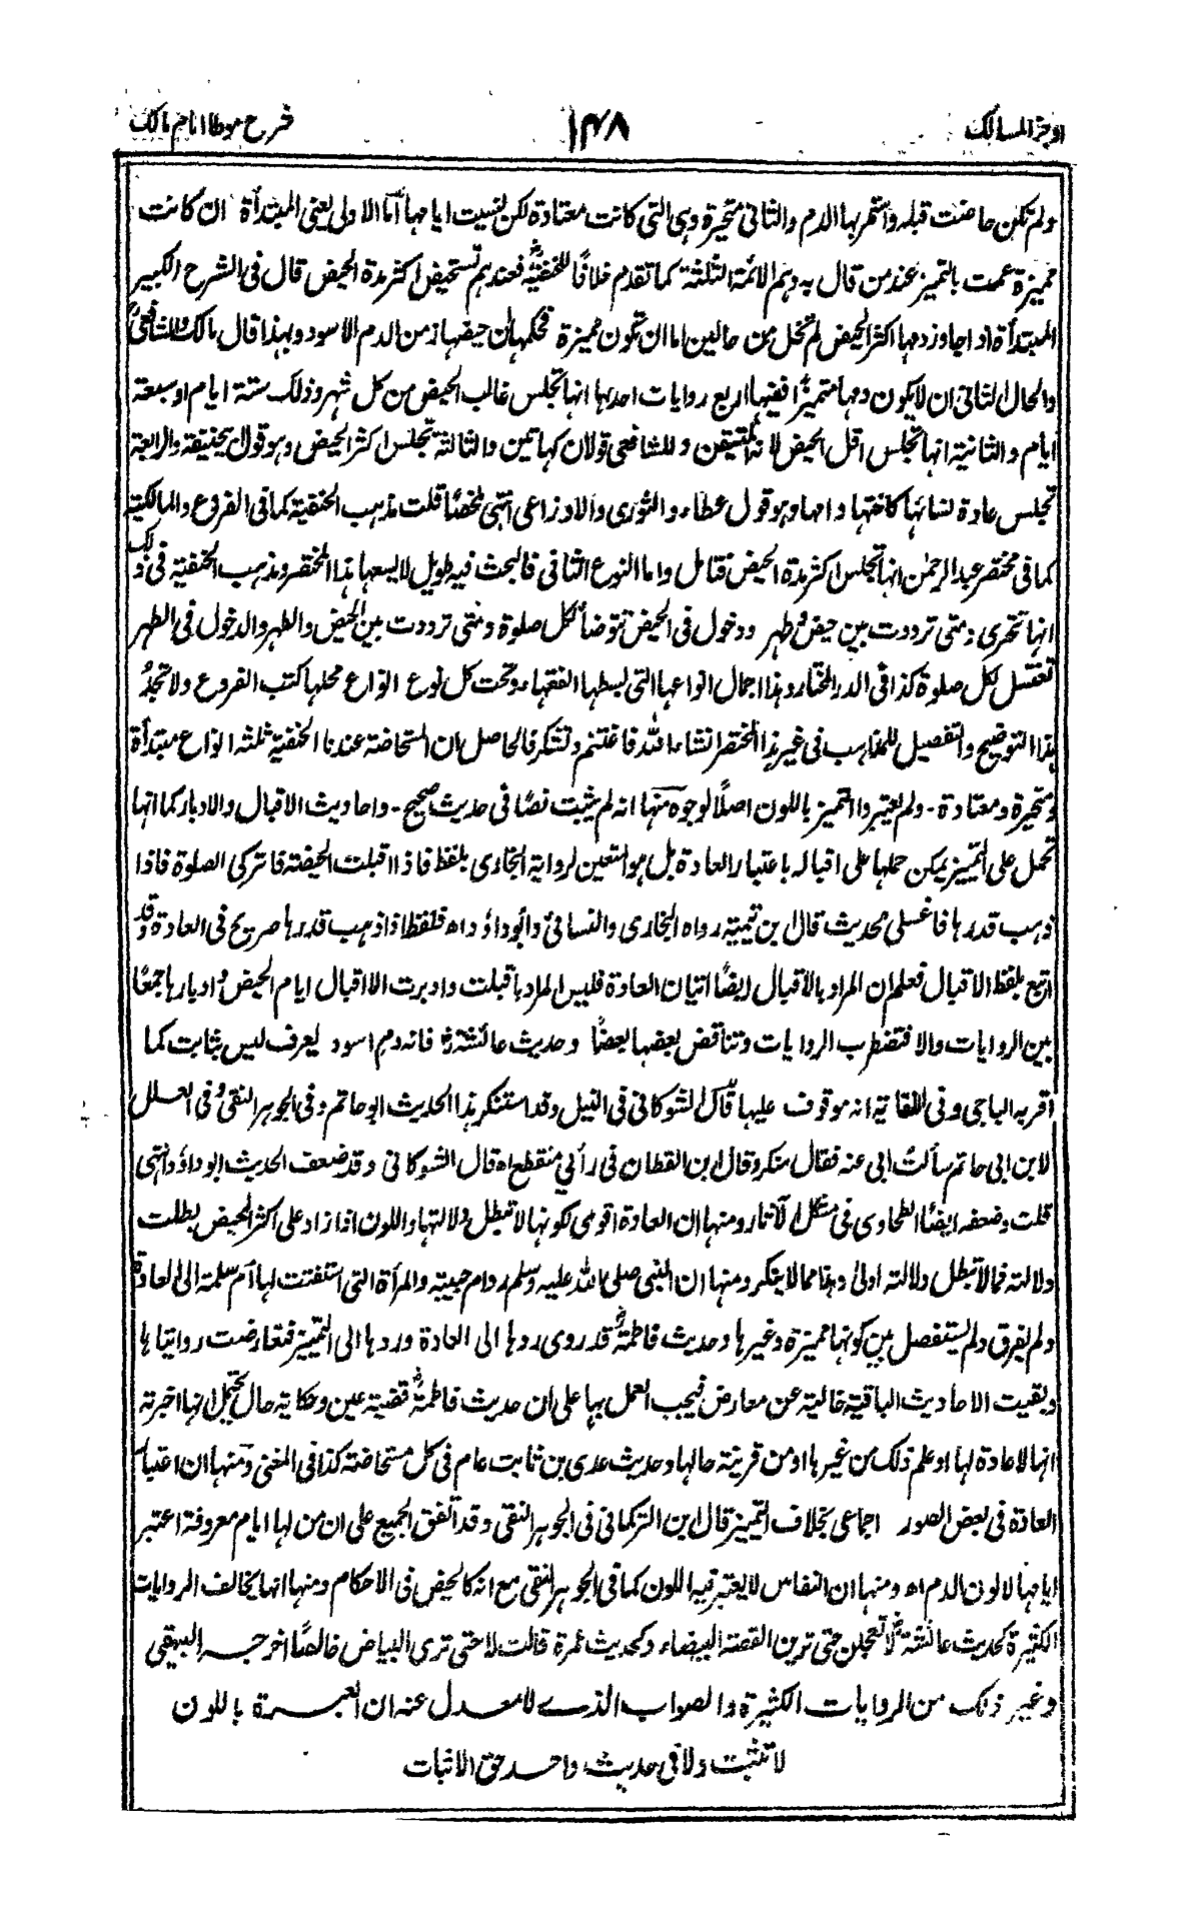 اوجز المسالك
١٤٨
شرح موطا امام مالك
ولم تكن حاضت قبله واستمر بها الدم والثانى متحيرة وهى التى كانت معتادة لكن نسيت ايامها اما الاولى يعنى المبتدأة ان كانت
مميزة عملت بالتميز عند من قال به وهم الائمة الثلثة كما تقدم خلافًا للحنفية فعندهم تستحيض اكثر مدة الحيض قال فى الشرح الكبير
المبتدأة اذا جاوز دمها اكثر الحيض لم تخل من حالين اما ان تكون مميزة فحكمها ان حيضها زمن الدم الاسود وبهذا قال مالك والشافعى
والحال الثانى ان لا يكون دمها متميزًا ففيها اربع روايات احدها انها تجلس غالب الحيض من كل شهر وذلك ستة ايام او سبعة
ايام والثانية انها تجلس اقل الحيض لانه المتيقن وللشافعى قولان كهاتين والثالثة تجلس اكثر الحيض وهو قول ابى حنيفة والرابعة
تجلس عادة نسائها كاختها وامها وهو قول عطاء والثورى والاوزاعى انتهى ملخصًا قلت مذهب الحنفية كما فى الفروع والمالكية
كما فى مختصر عبد الرحمٰن انها تجلس اكثر مدة الحيض فتامل واما النوع الثانى فالبحث فيه طويل لا يسعها هذا المختصر ومذهب الحنفية فى ذلك
انها تتحرى ومتى ترددت بين حيض وطهر ودخول فى الحيض تتوضأ لكل صلوة ومتى ترددت بين الحيض والطهر والدخول فى الطهر
تغتسل لكل صلوة كذا فى الدر المختار وهذا اجمال انواعها التى بسطها الفقهاء وتحت كل نوع انواع محلها كتب الفروع ولا تجد
هذا التوضيح والتفصيل للمذاهب فى غير هذا المختصر انشاء الله فاغتنم وتشكر فالحاصل ان المستحاضة عندنا الحنفية ثلثة انواع مبتدأة
ومتحيرة ومعتادة - ولم يعتبروا التميز باللون اصلًا لوجوه منها انه لم يثبت نصًا فى حديث صحيح - واحاديث الاقبال والادبار كما انها
تحمل على التميز يمكن حملها على اقباله باعتبار العادة بل هو المتعين لرواية البخارى بلفظ فاذا اقبلت الحيضة فاتركى الصلوة فاذا
ذهب قدرها فاغسلى الحديث قال ابن تيمية رواه البخارى والنسائى وابوداؤد اه فلفظ اذا ذهب قدرها صريح فى العادة وقد
اتبع بلفظ الاقبال فعلم ان المراد بالاقبال ايضًا اتيان العادة فليس المراد باقبلت وادبرت الا اقبال ايام الحيض وادبارها جمعًا
بين الروايات والا فتضطرب الروايات وتناقض بعضها بعضًا وحديث عائشة فانه دم اسود يعرف ليس بثابت كما
اقر به الباجى وفى انه موقوف عليها قال الشوكانى فى النيل وقد استنكر هذا الحديث ابو حاتم وفى الجوهر النقى وفى العلل
لابن ابى حاتم سألت ابى عنه فقال منكر وقال ابن القطان فى رأيي منقطع اه قال الشوكانى وقد ضعف الحديث ابوداؤد انتهى
قلت وضعفه ايضًا الطحاوى فى مشكل الآثار ومنها ان العادة اقوى لكونها لا تبطل دلالتها واللون اذا زاد على اكثر الحيض بطلت
دلالته فما لا تبطل دلالته اولى وهذا مما لا ينكر ومنها ان النبى صلى الله عليه وسلم رد ام حبيبة والمرأة التى استفتت لها ام سلمة الى العادة
ولم يفرق ولم يستفصل بين كونها مميزة وغيرها وحديث فاطمة قد روى ردها الى العادة وردها الى التميز فتعارضت روايتاها
وبقيت الاحاديث الباقية خالية عن معارض فيجب العمل بها على ان حديث فاطمة قضية عين وحكاية حال يحتمل انها اخبرته
انها لا عادة لها او علم ذلك من غيرها او من قرينة حالها وحديث عدى بن ثابت عام فى كل مستحاضة كذا فى المغنى ومنها ان اعتبار
العادة فى بعض الصور اجماعى بخلاف التميز قال ابن التركمانى فى الجوهر النقى وقد اتفق الجميع على ان من لها ايام معروفة اعتبر
ايامها لا لون الدم اه ومنها ان النفاس لا يعتبر فيه اللون كما فى الجوهر النقى مع انه كالحيض فى الاحكام ومنها انها يخالف الروايات
الكثيرة كحديث عائشة لا تعجلن حتى ترين القصة البيضاء وكحديث عمرة قالت لا حتى ترى البياض خالصًا اخرجه البيهقى
وغير ذلك من الروايات الكثيرة والصواب الذى لا معدل عنه ان العبرة باللون
لا تثبت ولا فى حديث واحد حق الاثبات